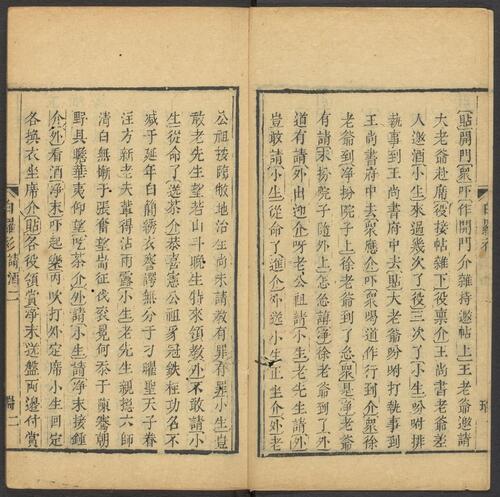 點開門衆吓作開門介雜持邀帖上王老爺邀請
大老爺赴席役接帖雜下役稟介王尚書老爺差
人邀酒小生來過幾次了役三次了小生吩咐排
執事到王尚書府中去點大老爺吩咐打執事到
王尚書府中去衆應介吓衆喝道作行到介衆徐
老爺到凈扮院子上徐老爺到了怎衆是凈老爺
有請末扮院子隨外上怎怎請凈徐老爺到了外
道有請外出迎介呀老公祖請小生老先生請外
豈敢請小生從命了進介外送小生正坐介外老
公祖按臨敝地治生尚未請教有罪有罪小生豈
敢老先生望若山斗晚生特來領教外不敢請小
生從命了送茶介恭喜憲公祖豸冠鉄柱功名不
減于延年白簡綉衣謇諤無分于刁曜聖天子春
汪方新老夫輩得沾雨露小生老先生親摠六師
清白無慚于張奮望崙征伐裴晃何忝于龎籌朝
野具瞻華夷仰望吃茶介外請小生請凈末接鍾
介外看酒凈末吓起樂內吹打外定席小生回定
各換衣坐席介貼各役領賞凈末送盤兩邊付賞
白羅衫 請酒 二